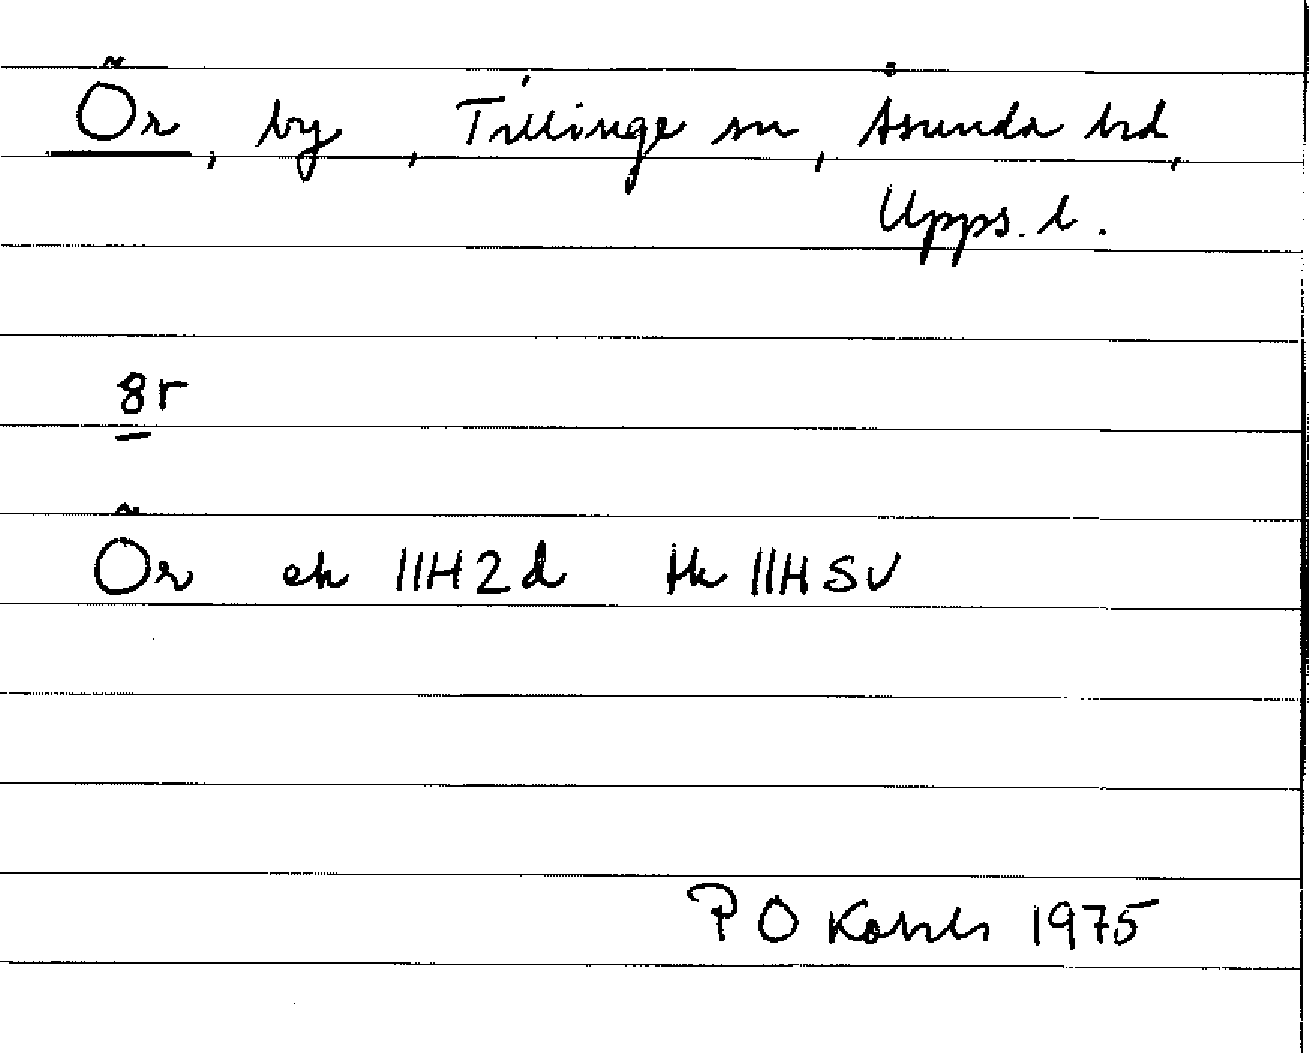 Ör, by, Tillinge sn, Åsunda hd,
Upps. l.
8r
Ör ek 11H2d tk 11HSV
P O 1975